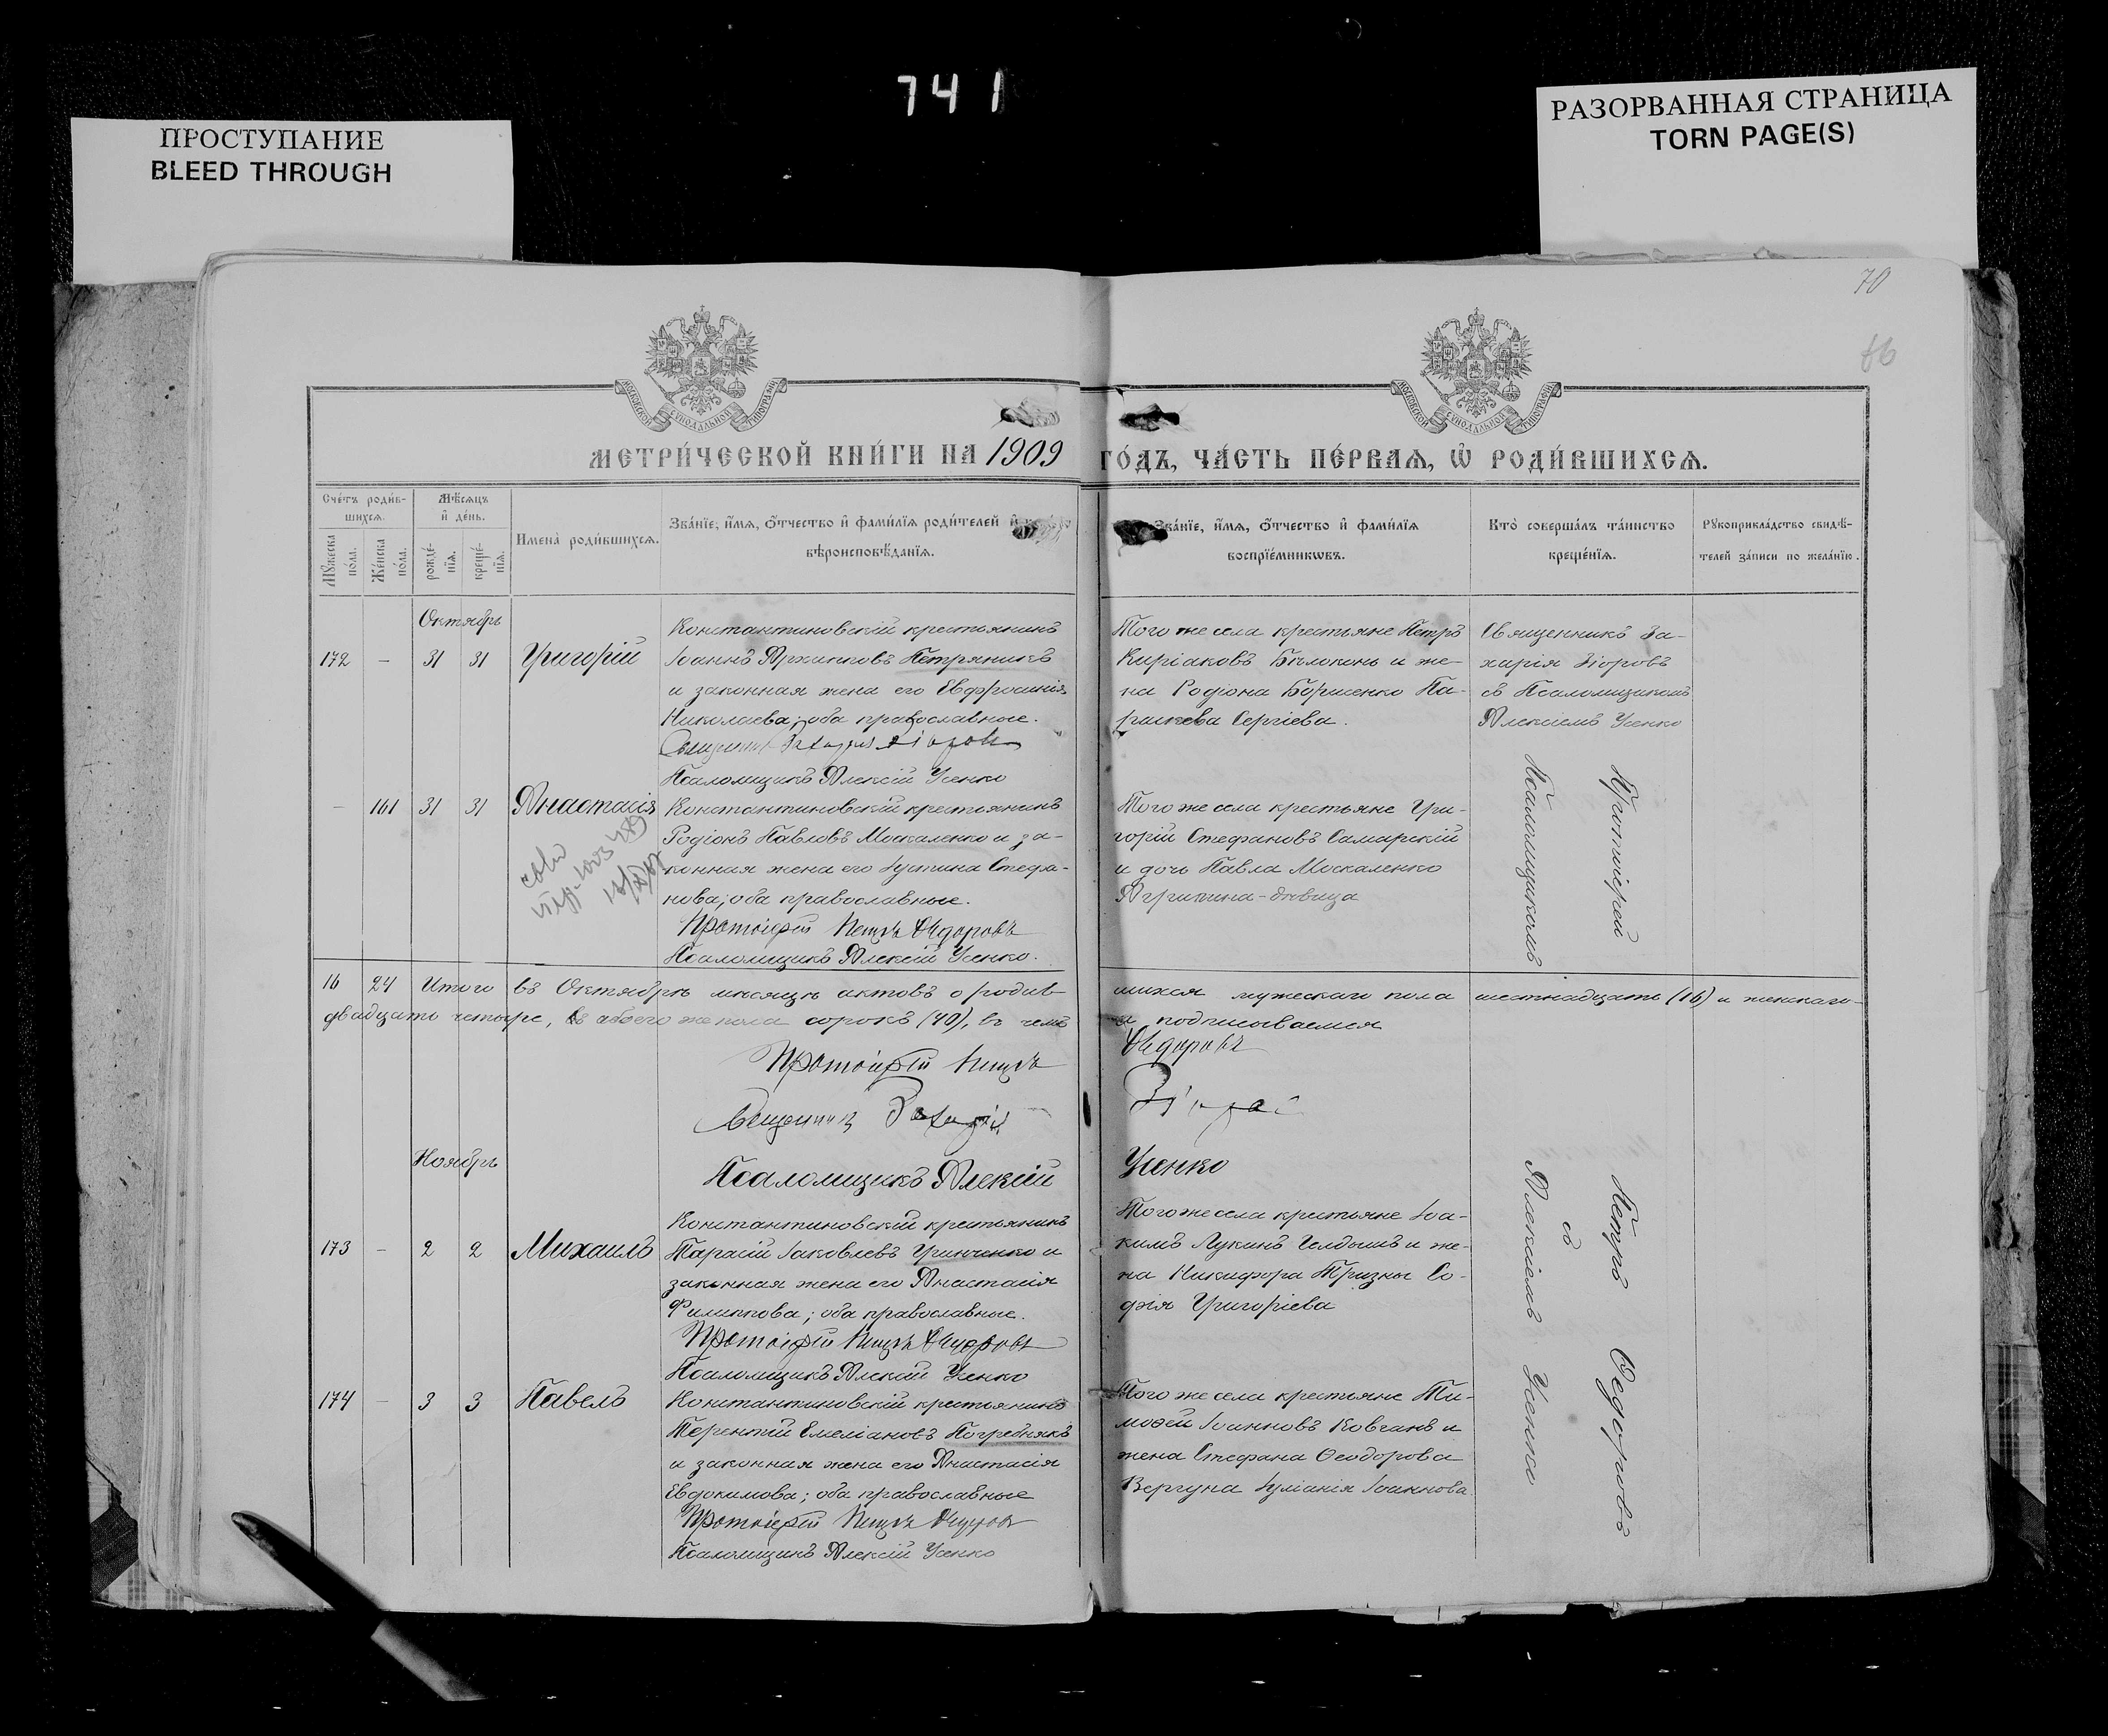 741
ПРОСТУПАНИЕ
BLEED THROUGH
РАЗОРВАННАЯ СТРАНИЦА
TORN PAGE(S)
70
МОСКОВСКОЙ СѴНОДАЛЬНОЙ ТИПОГРАФІИ
МОСКОВСКОЙ СѴНОДАЛЬНОЙ ТИПОГРАФІИ
МЕТРИ́ЧЕСКОЙ КНИ́ГИ НА 1909 ГО́ДЪ, ЧА́СТЬ ПЕ́РВАѦ, Ѽ РОДИ́ВШИХСѦ.
Сче́тъ роди́в-
шихсѧ.
Мꙋжеска по́ла.
Же́нска по́ла.
Мѣ́сѧцъ
и҆ де́нь.
рожде́-
нїѧ.
креще́-
нїѧ.
Имена̀ роди́вшихсѧ.
Зва́нїе, и҆́мѧ, ѻ҆́тчество и҆ фами́лїѧ роди́телей и҆
вѣроисповѣ́данїѧ.
Зва́нїе, и҆́мѧ, ѻ҆́тчество и҆ фами́лїѧ
воспрїе́мникѡвъ.
Кто̀ соверша́лъ та́инство
креще́нїѧ.
Рꙋкоприкла́дство свидѣ́-
телей за́писи по жела́нїю.
Октябрь
172 - 31 31 Григорій
Константиновскій крестьянинъ
Іоаннъ Архиповъ Петряникъ
и законная жена его Евфросинія
Николаева; оба православные.
Священникъ
Псаломщикъ Алексій Усенко
Того же села крестьяне Петръ
Киріаковъ Бѣлоконь и же-
на Родіона Борисенко Па-
раскева Сергіева.
Священникъ За-
харія Зіоровъ
съ Псаломщикомъ
Алексіемъ Усенко
- 161 31 31 Анастасія
Константиновскій крестьянинъ
Родіонъ Павловъ Москаленко и за-
конная жена его Іустина Стефа-
нова; оба православные.
Протоіерей Петръ Ѳедоровъ
Псаломщикъ Алексій Усенко.
Того же села крестьяне Гри-
горій Стефановъ Самарскій
и дочь Павла Москаленко
Агрипина - дѣвица
16 24 Итого въ Октябрѣ мѣсяцѣ актовъ о родив-шихся мужескаго пола шестнадцать (16) и женскаго-
двадцать четыре, а обоего же пола сорокъ (40), въ чемъ и подписываемся
Протоіерей Петръ Ѳедоровъ
Священникъ Захарій Зіоров
Псаломщикъ Алексій Усенко
Ноябрь
173 - 2 2 Михаилъ
Константиновскій крестьянинъ
Тарасій Іаковлевъ Гринченко и
законная жена его Анастасія
Филиппова; оба православные.
Протоіерей Петръ Ѳедоровъ
Псаломщикъ Алексій Усенко
Того же села крестьяне Іоа-
кимъ Лукинъ и же-
на Никифора Тризны Со-
фія Григоріева
174 - 3 3 Павелъ
Константиновскій крестьянинъ
Терентій Емеліановъ Погребнякъ
и законная жена его Анастасія
Евдокимова; оба православные
Протоіерей Петръ Ѳедоровъ
Псаломщикъ Алексій Усенко
Того же села крестьяне Ти-
моѳей Іоанновъ Ковганъ и
жена Стефана Ѳеодорова
Вергуна Іуліанія Іоаннова.
Протоіерей Петръ Ѳедоровъ
съ
Псаломщикомъ Алексіемъ Усенко